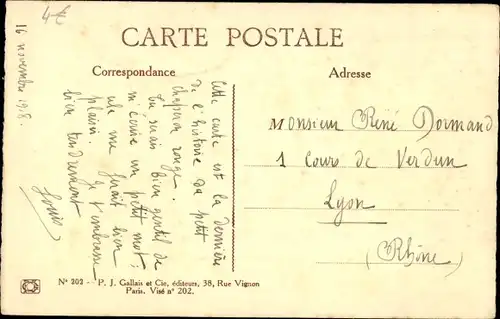 4€
16 novembre 1918.
CARTE POSTALE
Correspondance
Adresse
Cette carte est la dernière
de l'histoire du petit
chaperon rouge.
Tu serais bien gentil de
m'écrire un petit mot;
cela me ferait bien
plaisir. Je t'embrasse
bien tendrement
Louis
Monsieur René Dormand
1 Cours de Verdun
Lyon
(Rhône)
N° 202 - P. J. Gallais et Cie, éditeurs, 38, Rue Vignon
Paris. Visé n° 202.